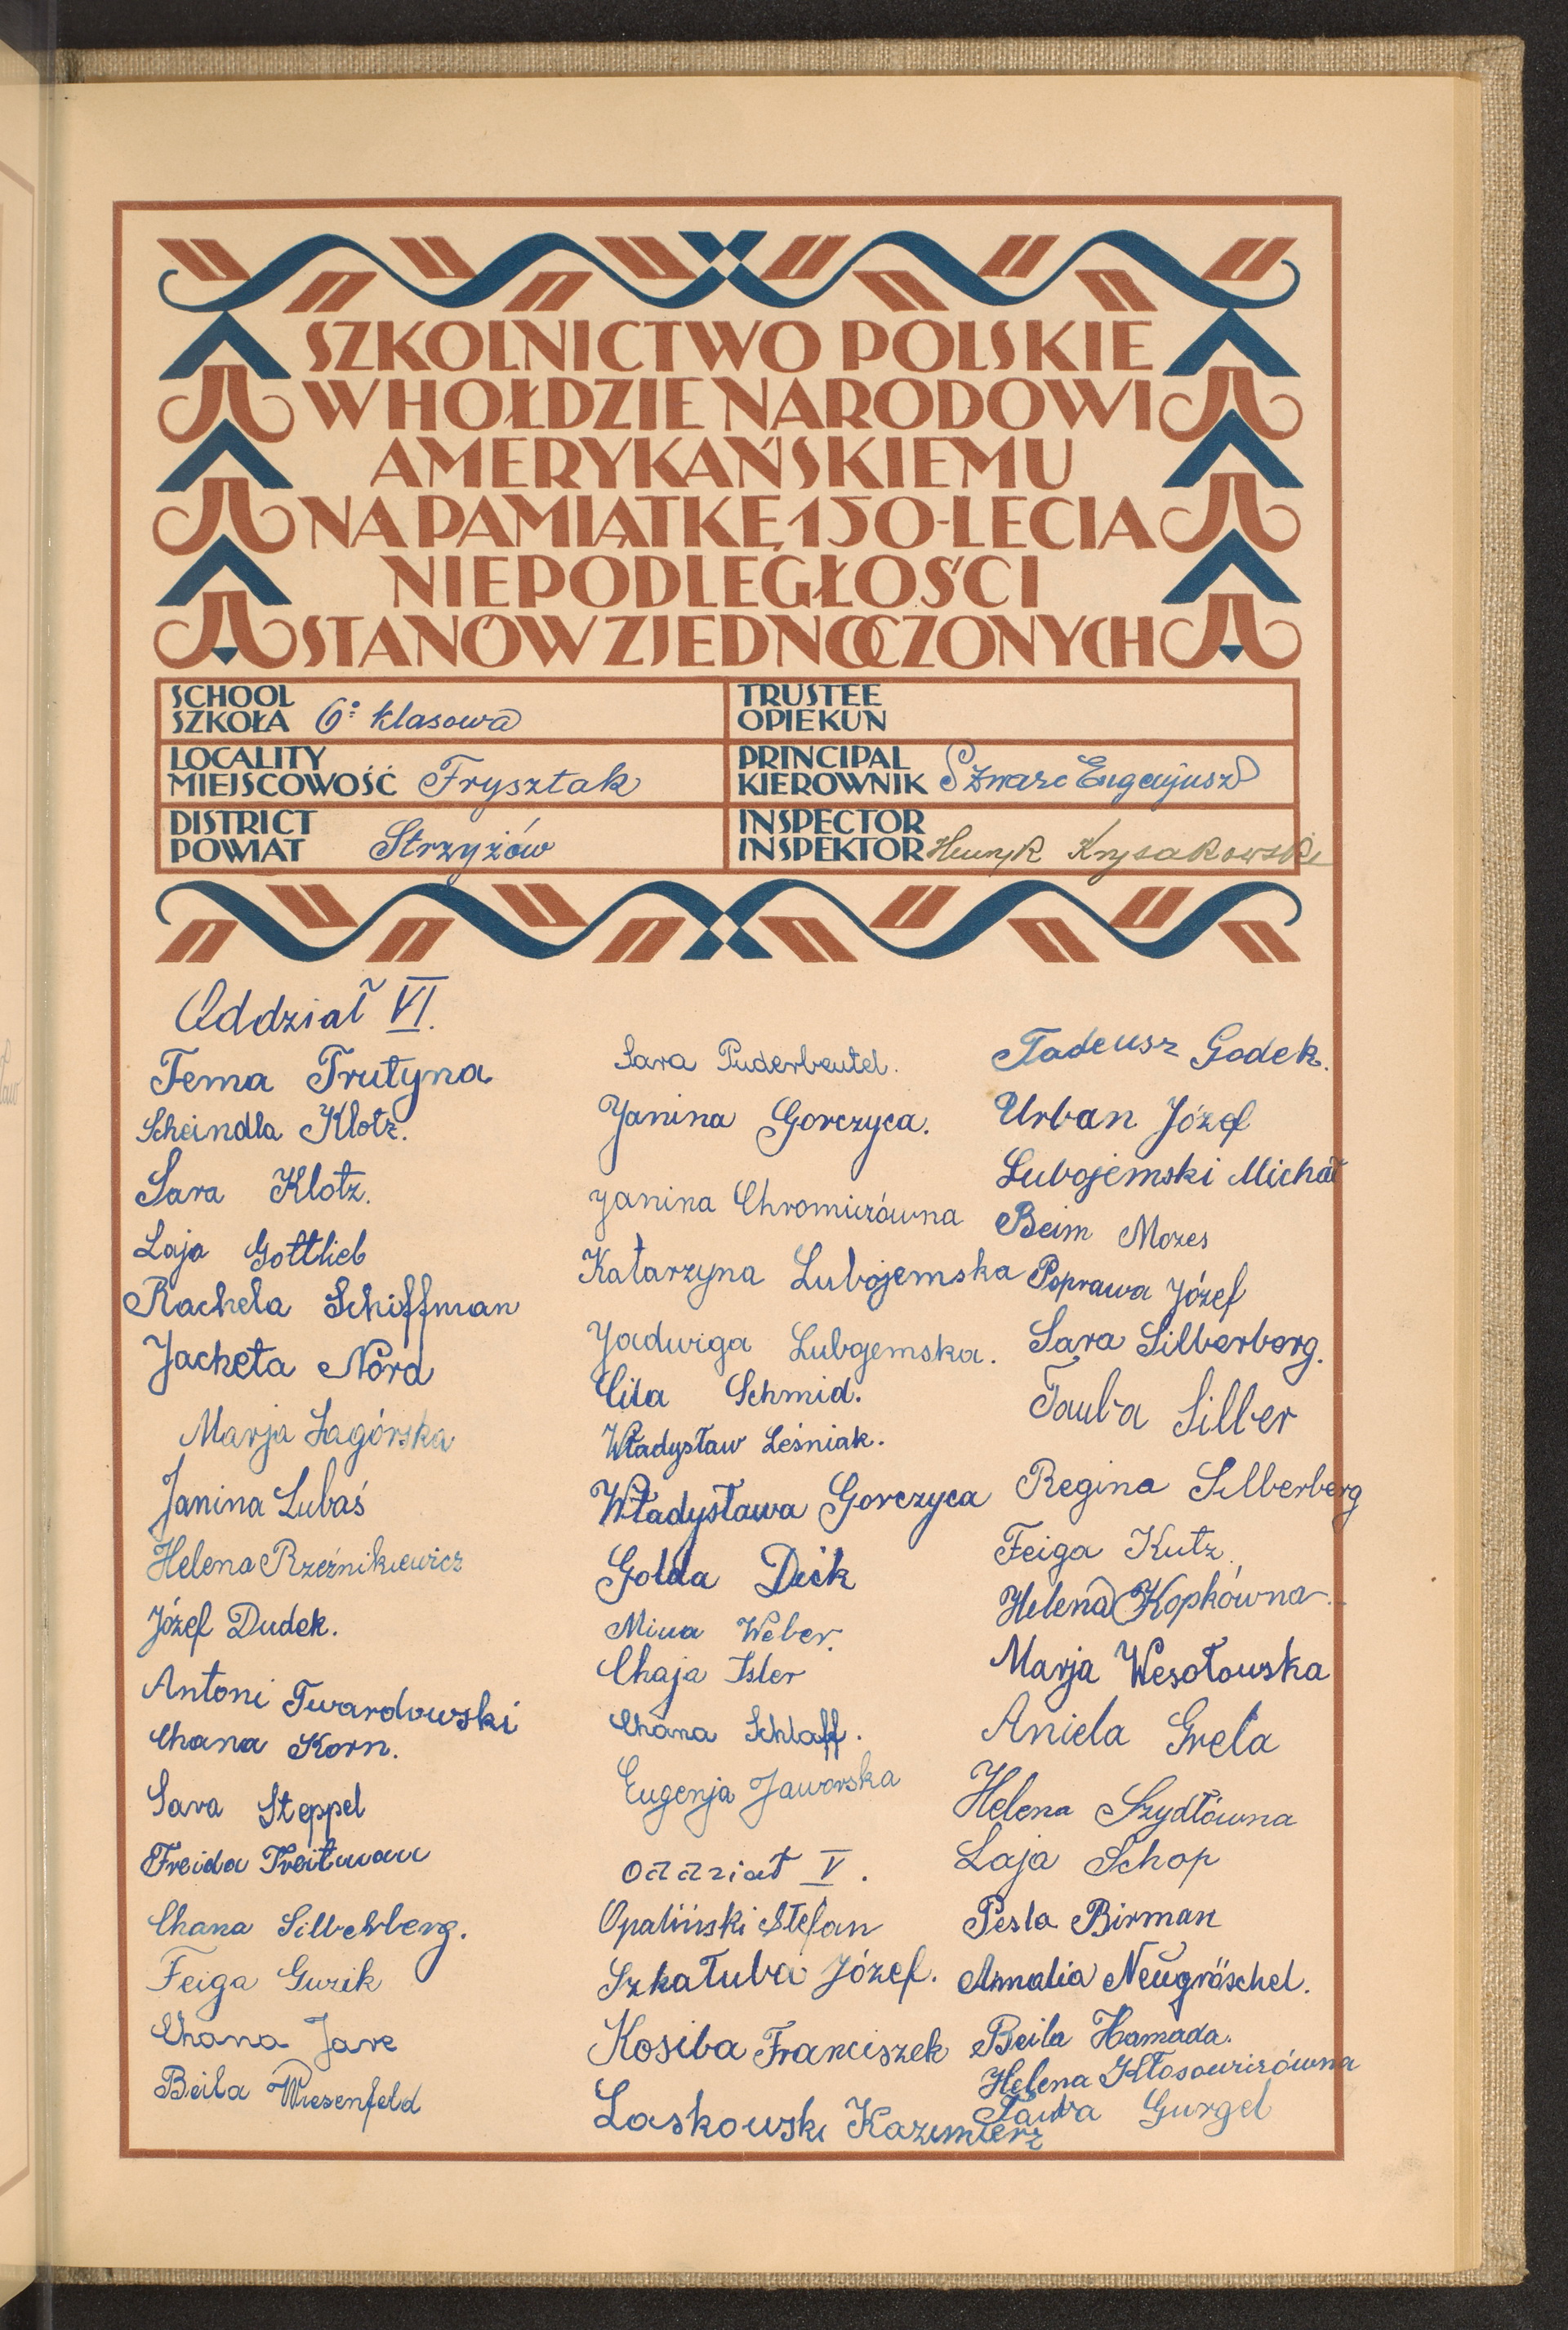 SZKOLNICTWO POLSKIE
W HOŁDZIE NARODOWI
AMERYKAŃSKIEMU
NA PAMIĄTKĘ 150-LECIA
NIEPODLEGŁOŚCI
STANÓW ZJEDNOCZONYCH
SCHOOL
SZKOŁA 6: klasowa
TRUSTEE
OPIEKUN
LOCALITY
MIEJSCOWOŚĆ Frysztak
PRINCIPAL
KIEROWNIK Szwarc Eugenjusz
DISTRICT
POWIAT Strzyżów
INSPECTOR
INSPEKTOR Henryk Krysakowski
Oddział VI.
Tema Trutyna
Scheindla Klotz.
Sara Klotz.
Laja Gottlieb
Rachela Schiffman
Jacheta Nord
Marja Łagórska
Janina Lubaś
Helena Rzeźnikiewicz
Józef Dudek.
Antoni Twardowski
Chana Korn.
Sara Steppel
Freida Treitman
Chana Silberberg.
Feiga Guzik
Chana Jare
Beila Wiesenfeld
Sara Puderbeutel.
Janina Gorczyca.
Janina Chromiczówna
Katarzyna Lubojemska
Jadwiga Lubojemska.
Cila Schmid.
Władysław Leśniak.
Władysława Gorczyca
Golda Dick
Mina Weber.
Chaja Isler
Chana Schlaff.
Eugenja Jaworska
Oddział V.
Opaliński Stefan
Szkatuba Józef.
Kosiba Franciszek
Laskowski Kazimierz
Tadeusz Godek.
Urban Józef
Lubojemski Michał
Beim Mozes
Poprawa Józef
Sara Silberberg.
Tauba Silber
Regina Silberberg
Feiga Kutz.
Helena Kopkówna.
Marja Wesołowska
Aniela Grela
Helena Szydłówna
Laja Schop
Pesla Birman
Amalia Neugröschel.
Beila Hamada.
Helena Kłosowiczówna
Tauba Gurgel